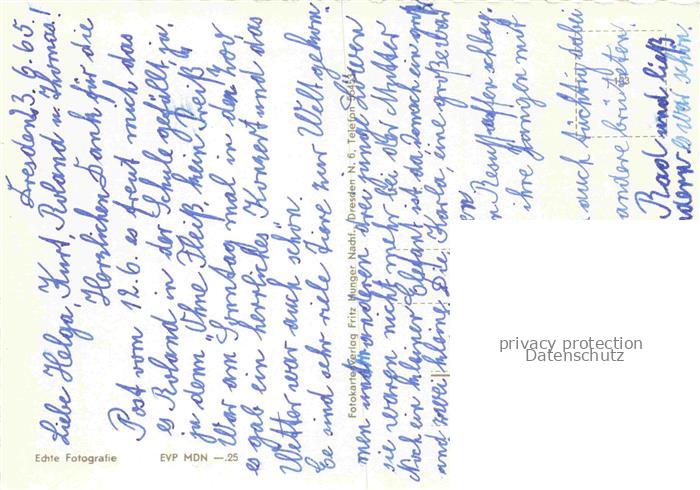 Dresden 23. 9. 65.
Liebe Helga, Kurt, Roland u. Thomas!
Herzlichen Dank für die
Post vom 12.6. es freut mich das
es Roland in der Schule gefällt, ja,
ja denn "Ohne Fleiß, kein Preiß".
War am Sonntag mal in den Zoo,
es gab ein herrliches Konzert und das
Wetter war auch schön.
Es sind sehr viele Tiere zur Welt gekom-
men unter anderen drei junge Löwen
sie waren nicht mehr bei der Mutter
Noch ein kleiner Elefant ist da, danach ein
und zwei kleine. Die Karla, eine große
Resusaffen
ihre jungen mit
auch tüchtig dabei
andere brüteten.
Rad und ließ
war schön.
Fotokartenverlag Fritz Hunger Nachf., Dresden N. 6, Telefon
Echte Fotografie
EVP MDN —.25
privacy protection
Datenschutz